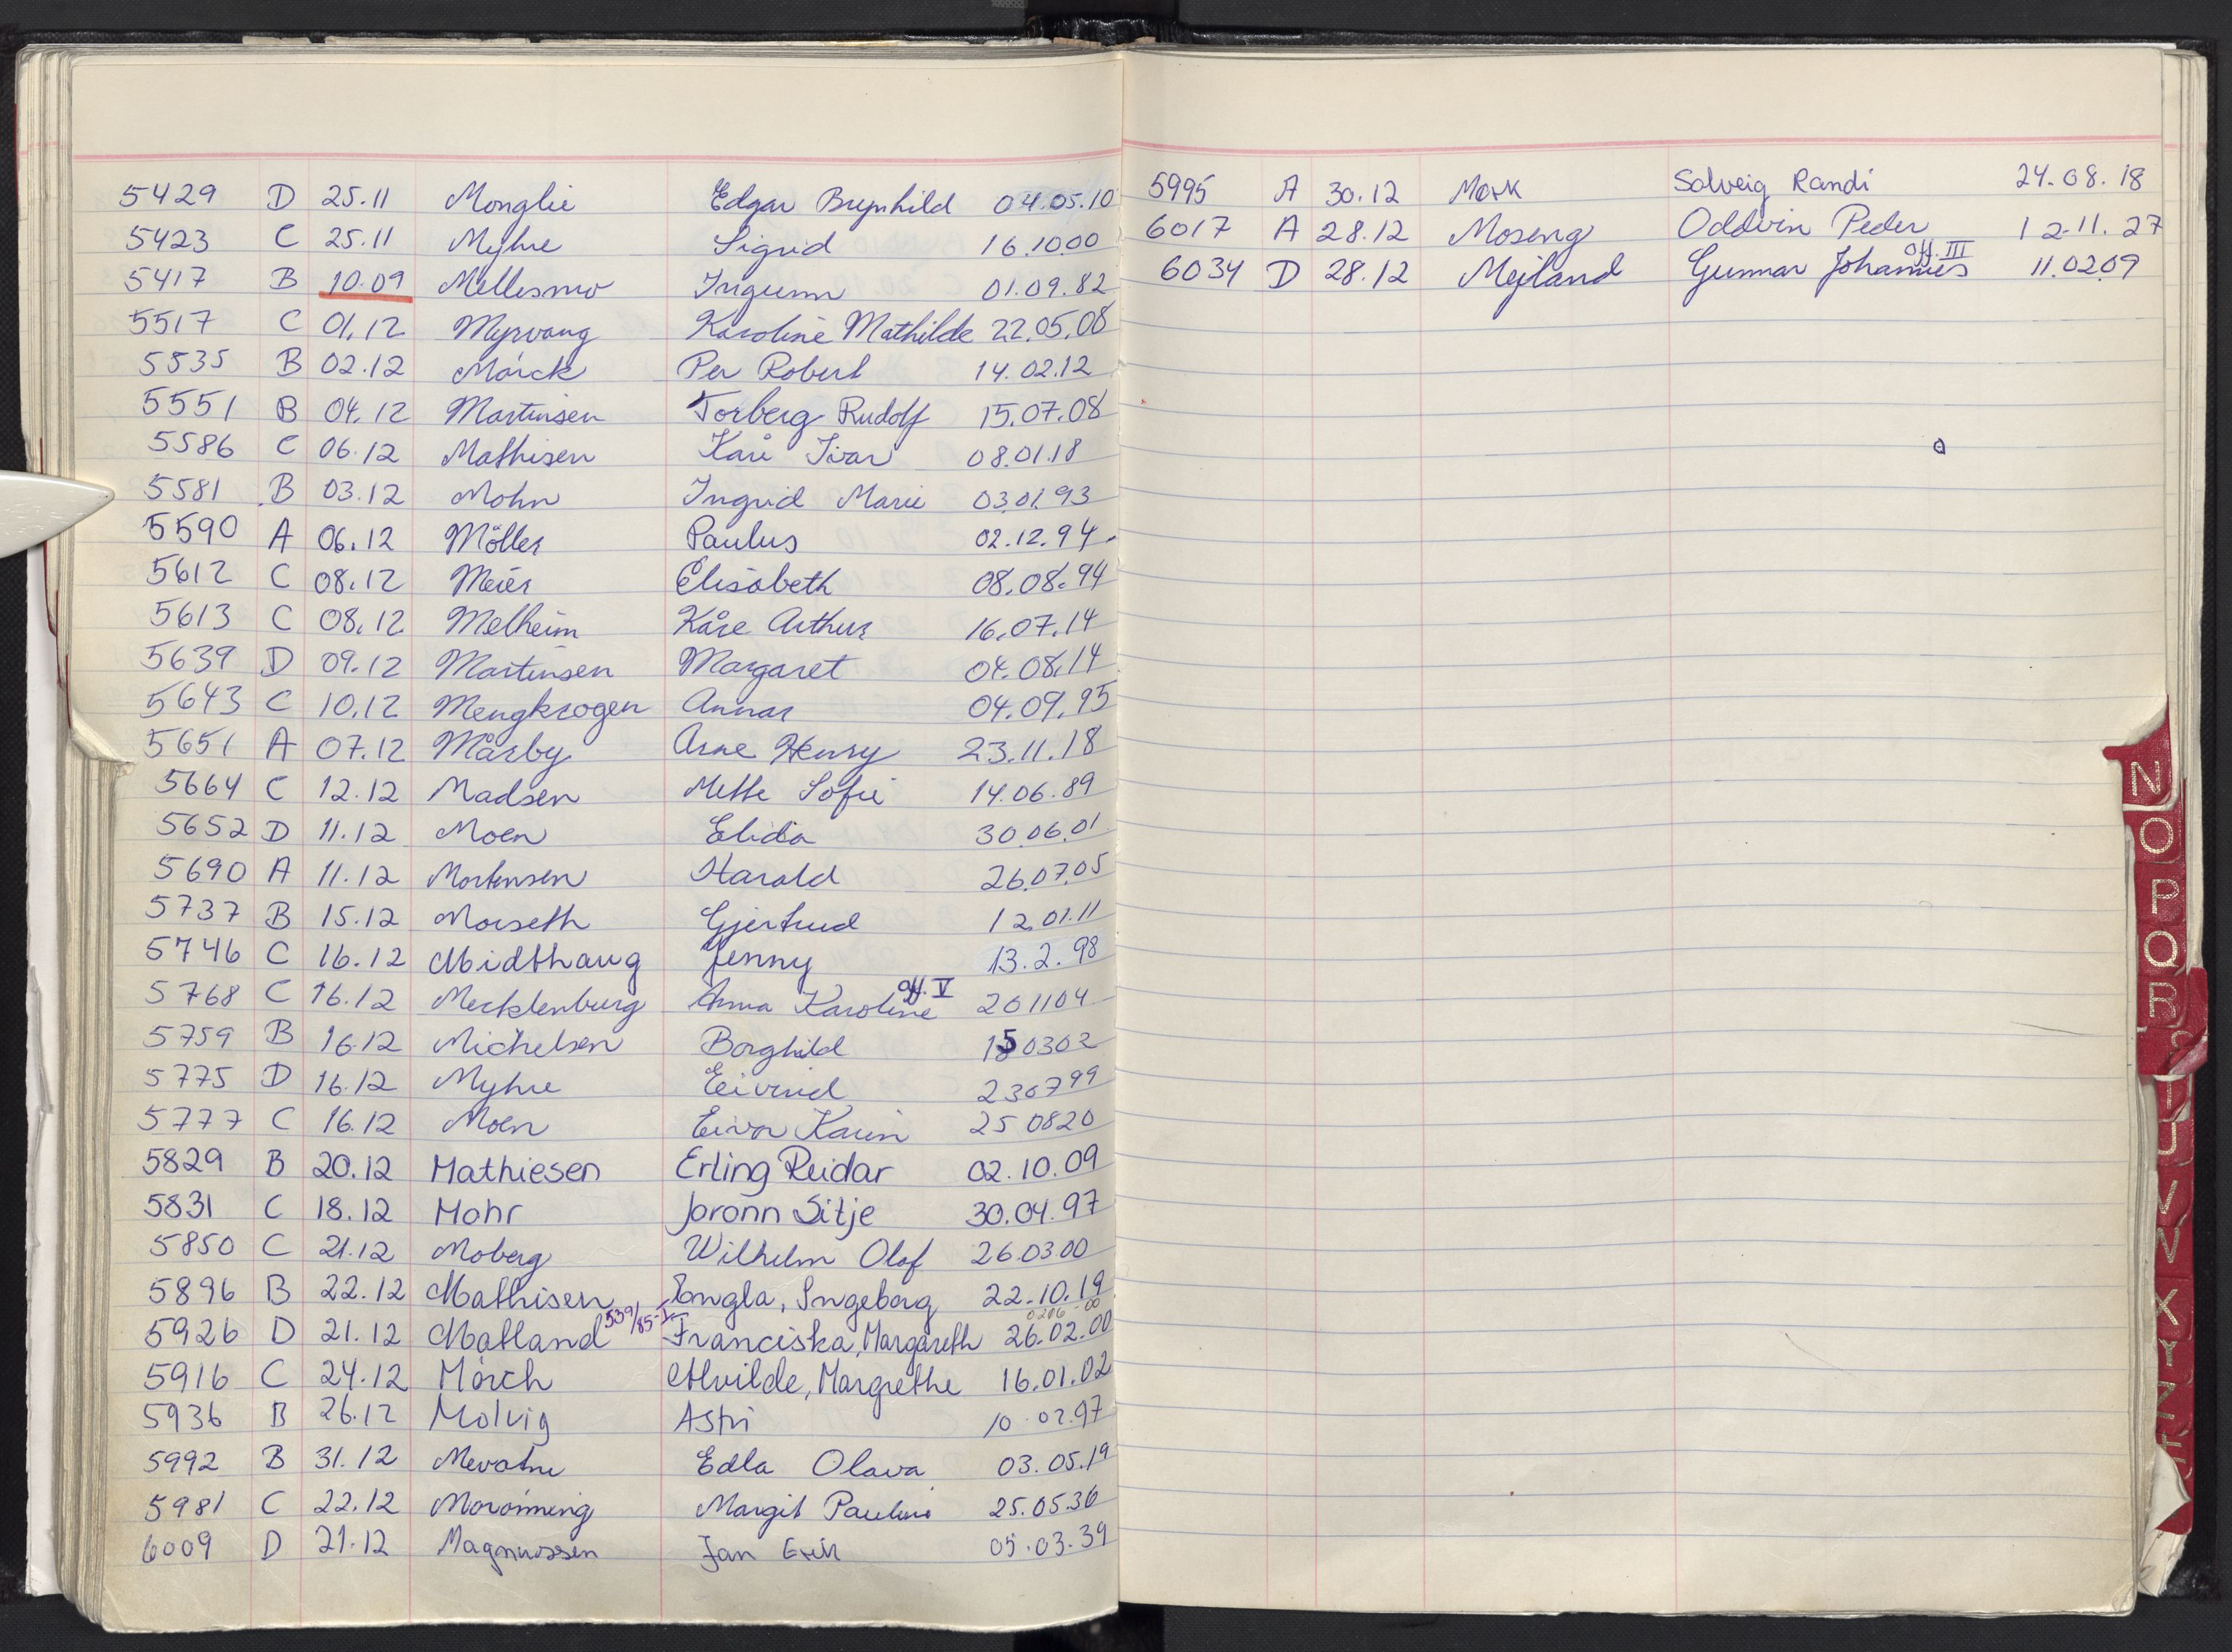 5429 D 25.11 Monglie Edgar Brynhild 04.05.10
5423 C 25.11 Myhre Sigrid 16.10.00
5417 B 10.09 Mellesmo Ingunn 01.09.82
5517 C 01.12 Myrvang Karoline Mathilde 22.05.08
5535 B 02.12 Mörck Per Robert 14.02.12
5551 B 04.12 Martinsen Torberg Rudolf 15.07.08
5586 C 06.12 Mathisen Kåre Ivar 08.01.18
5581 B 03.12 Mohn Ingrid Marie 03.01.93
5590 A 06.12 Möller Paulus 02.12.94
5612 C 08.12 Meier Elisabeth 08.08.94
5613 C 08.12 Melheim Kåre Arthur 16.07.14
5639 D 09.12 Martinsen Margaret 04.08.14
5643 C 10.12 Mengkrogen Annar 04.09.95
5651 A 07.12 Mårby Arne Henry 23.11.18
5664 C 12.12 Madsen Mette Sofie 14.06.89
5652 D 11.12 Moen Elida 30.06.01
5690 A 11.12 Mortensen Harald 26.07.05
5737 B 15.12 Morseth Gjertrud 12.01.11
5746 C 16.12 Midthaug Jenny 13.2.98
off. V
5768 C 16.12 Mecklenburg Anna Karoline 201104
5759 B 16.12 Michelsen Borghild 150302
5775 D 16.12 Myhre Eivind 230799
5777 C 16.12 Moen Eivor Karin 250820
5829 B 20.12 Mathiesen Erling Reidar 02.10.09
5831 C 18.12 Mohr Joronn Sitje 30.04.97
5850 C 21.12 Moberg Wilhelm Olaf 26.03.00
5896 B 22.12 Mathisen Tongla, Ingeborg 22.10.19
539/85-I
5926 D 21.12 Matland Franciska, Margareth 26.02.00
5916 C 24.12 Mörch Alvilde, Margrethe 16.01.02
5936 B 26.12 Molvig Astri 10.02.97
5992 B 31.12 Mevatne Edla Olava 03.05.19
5981 C 22.12 Margit 25.05.36
6009 D 21.12 Magnussen Jan Erik 05.03.39
5995 A 30.12 Mork Solveig Randi 24.08.18
6017 A 28.12 Moseng Oddvin Peder 12.11.27
off. III
6034 D 28.12 Mejland Gunnar Johannes 11.02.09
N
O
P
Q
R
U
V
X
Y
Z